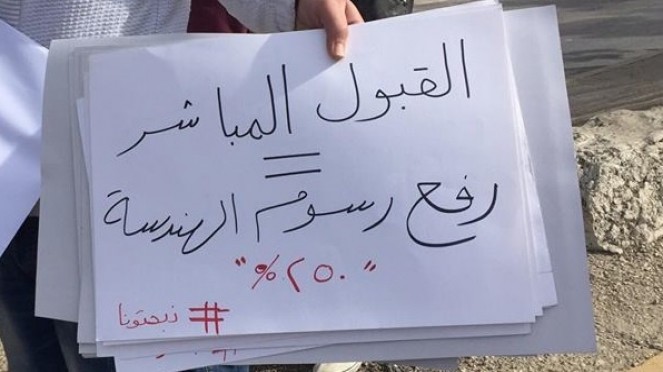 القبول المباشر
=
رفع رسوم الهندسة
"٢٥٠%"
#ذبحتونا